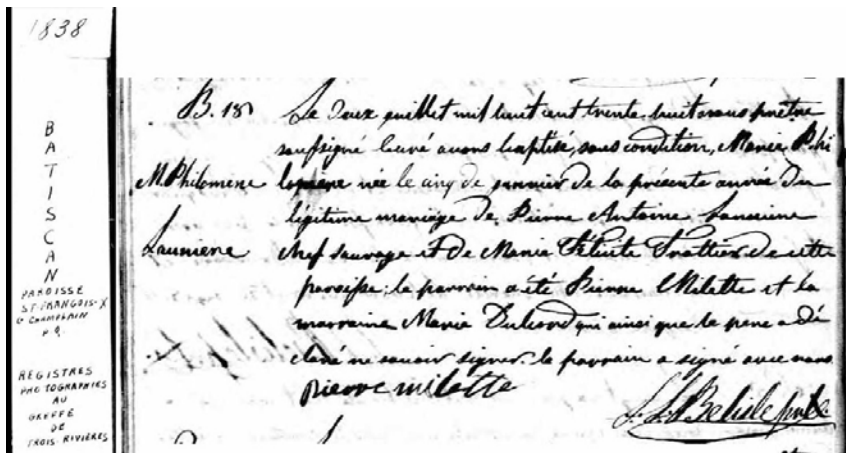 1838
BATISCAN
PAROISSE
ST-FRANÇOIS-X
C CHAMPLAIN
P.Q.
REGISTRES
PHOTOGRAPHIES
AU
GREFFE
DE
TROIS-RIVIÈRES
B. 18
M. Philomene
Launiere
Le deux juillet mil huit cent trente huit nous prêtre
soussigné curé avons baptisé, sous condition, Marie Phi
lomène née le cinq de janvier de la présente année du
légitime mariage de Pierre Antoine Launiere
chef sauvage et de Marie Félicite Trottier de cette
paroisse: le parrain a été Pierre Milette et la
marraine Marie qui ainsi que le pere a dé
claré ne savoir signer. le parrain a signé avec nous
pierre milette
L. Belisle ptre